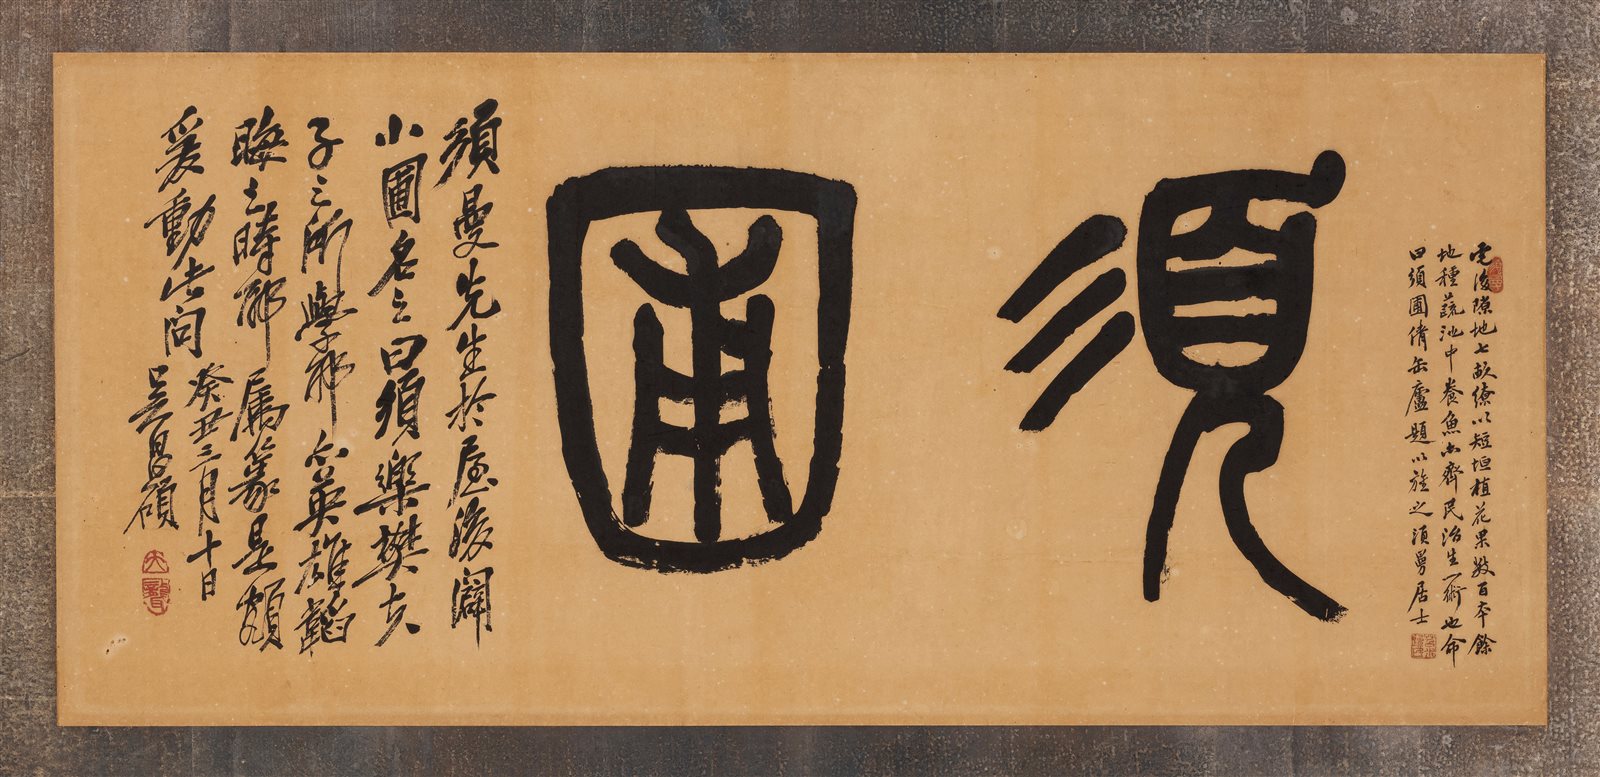 宅後隙地七畝繚以短垣植花果数百本餘
地種蔬池中養魚亦齊民治生一術也命
曰須圃倩缶廬題以旌之須曼居士
須圃
須曼先生於屋後闢
小圃名之曰須樂樊夫
子之所學邪亦英雄韜
晦之時邪屬篆是額
爰動此問癸丑三月十日
吳昌碩